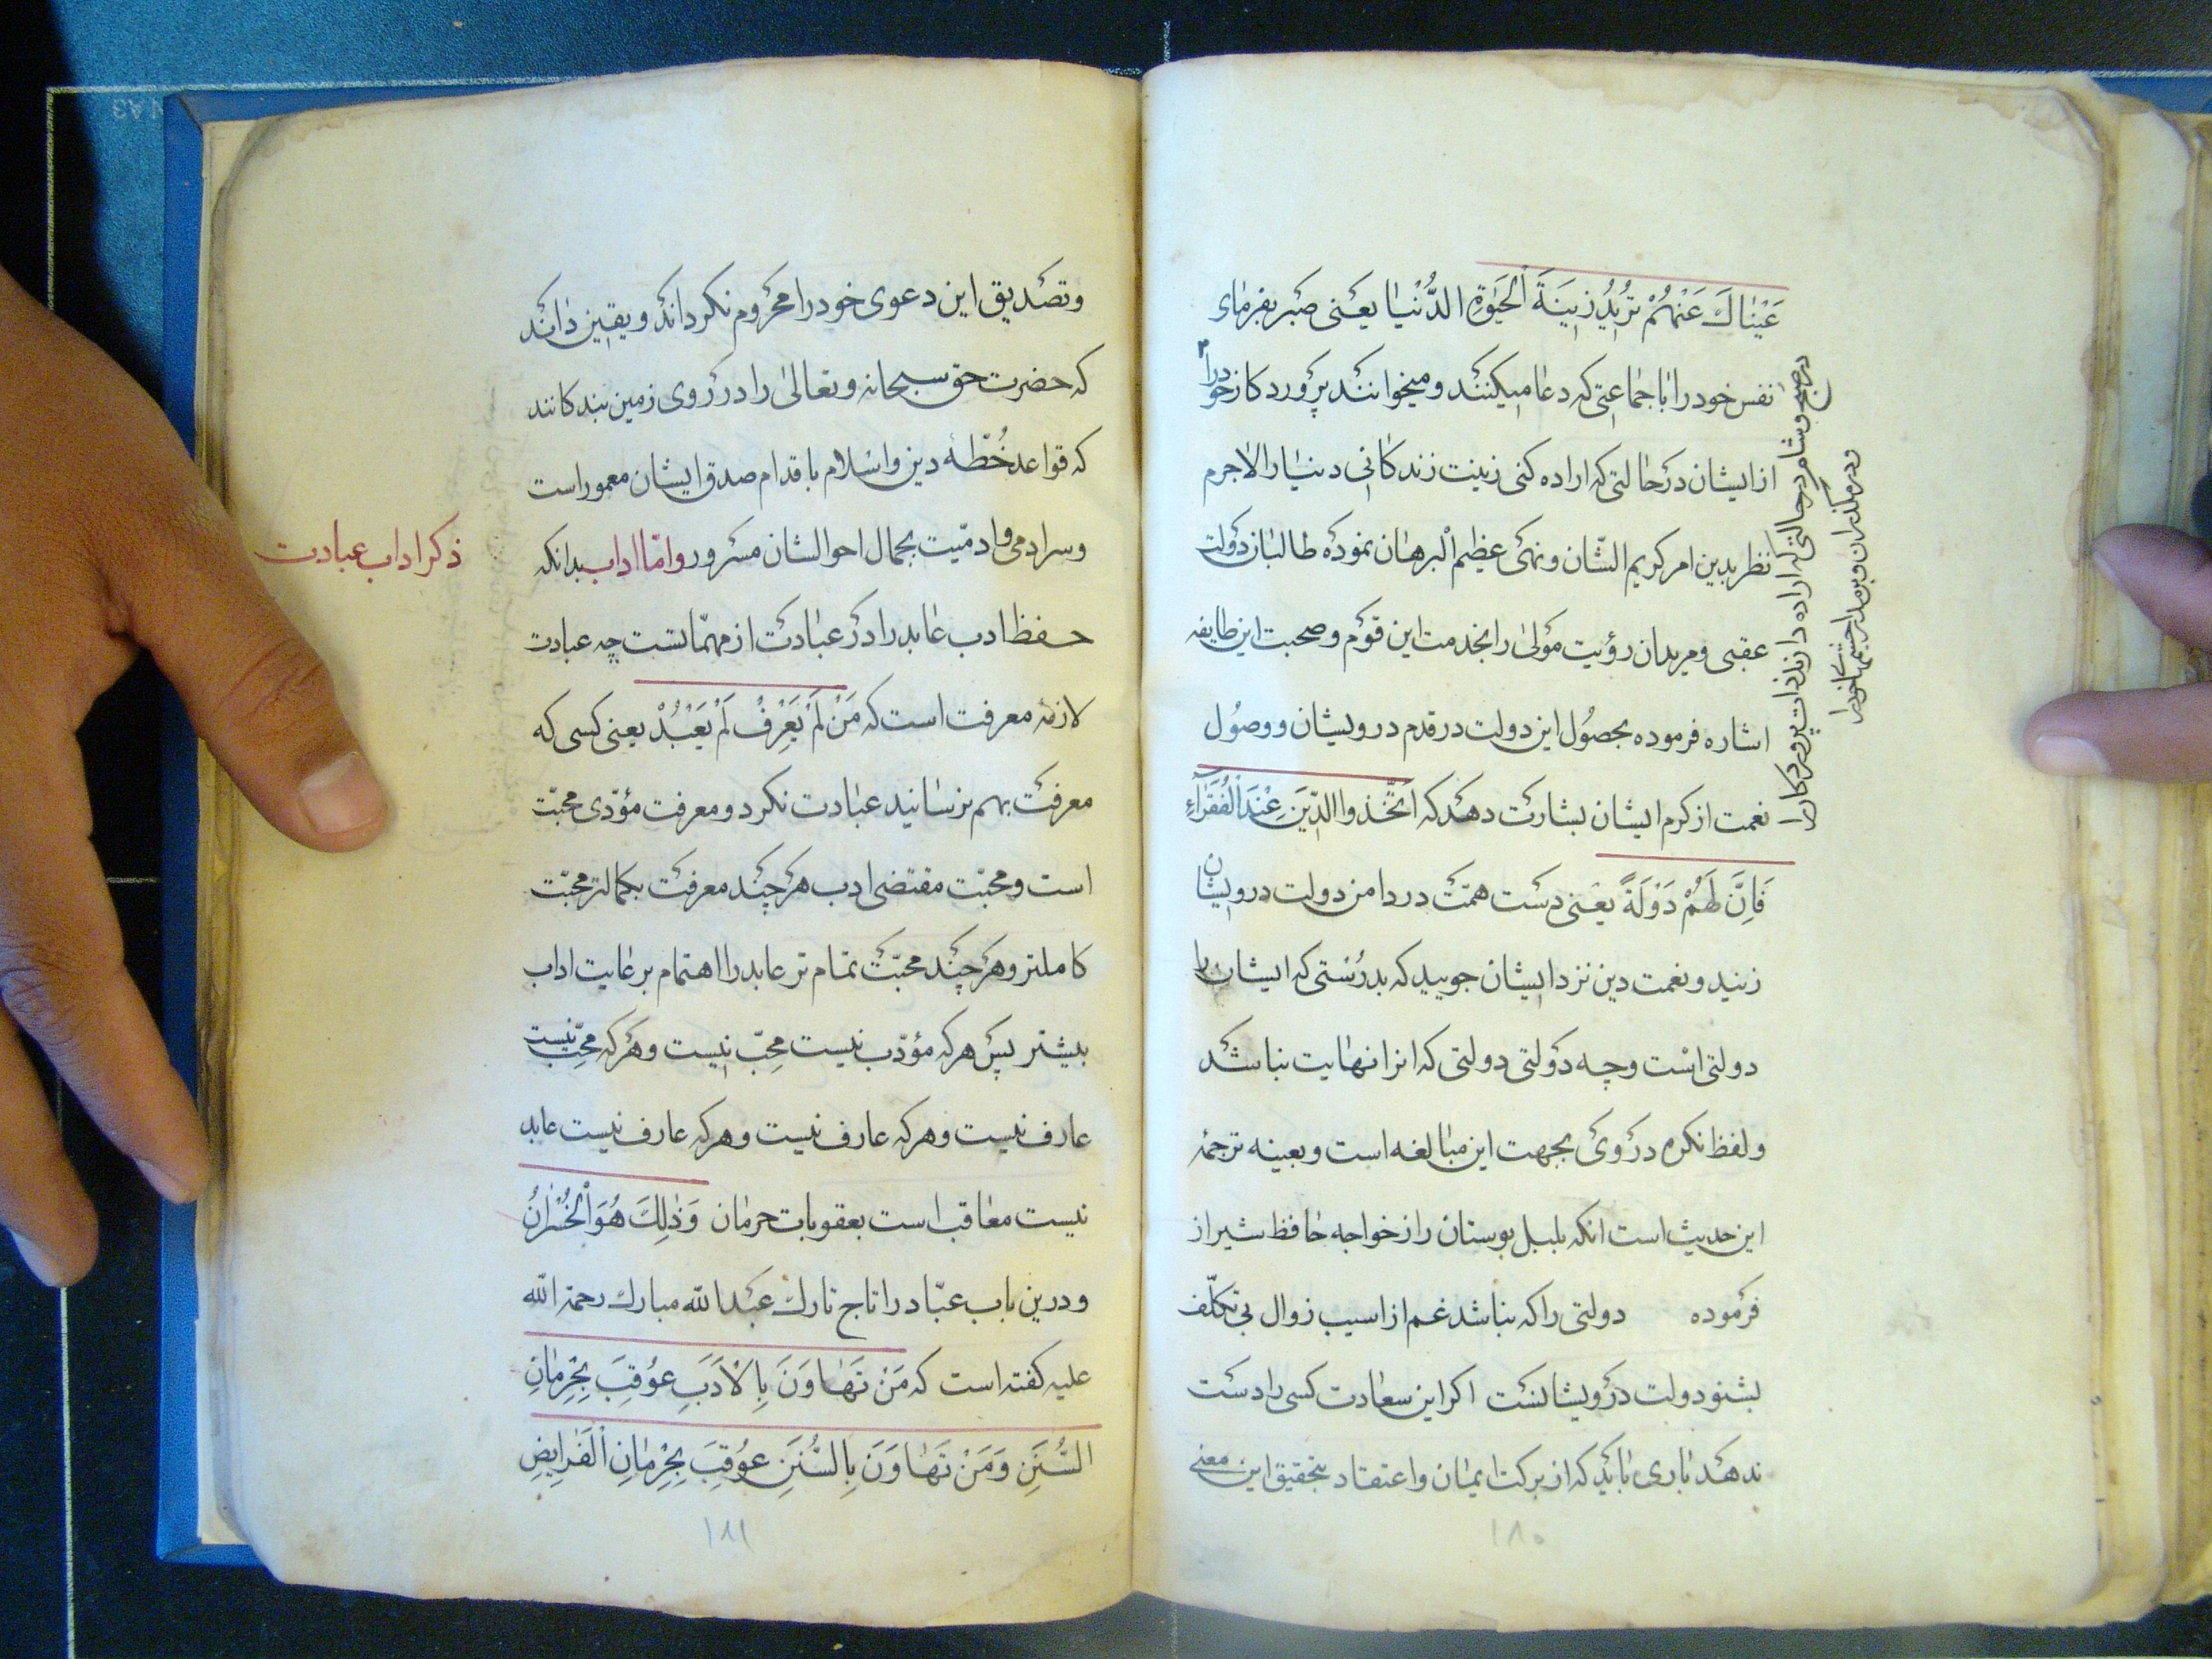 عَیْنَاكَ عَنْهُمْ تُرِیْدُ زِیْنَةَ الْحَیٰوةِ الدُّنْیَا یعنی صبر بفرمای
نفس خود را با جماعتی که دعا میکنند و میخوانند پروردکار خود را
از ایشان در حالتی که اراده کنی زینت زندکانی دنیا را لاجرم
نظر بدین امر کریم الشّان و نهی عظیم البرهان نموده طالبان دولت
عقبی و مریدان رؤیت مولیٰ را بخدمت این قوم و صحبت این طایفه
اشاره فرموده بحصُول این دولت در قدم درویشان و وصُول
نعمت از کرم ایشان بشارت دهد که اتَّخذوا الدِّیَن عِنْدَ الْفُقَرَآءِ
فَاِنَّ لَهُمْ دَوْلَةً یعنی دست همّت در دامن دولت درویشان
زنید و نعمت دین نزد ایشان جویید که بدرستی که ایشان را
دولتی است و چه دولتی دولتی که انرا نهایت نباشد
و لفظ نکره در وی بجهت این مبالغه است و بعینه ترجمهٔ
این حدیث است انکه بلبل بوستان راز خواجه حافظ شیراز
فرموده دولتی را که نباشد غم از اسیب زوال بی تکلّف
بشنو دولت درویشانست اکر این سعادت کسی را دست
ندهد باری باید که از برکت ایمان و اعتقاد بتحقیق این معنی
در صبح و شام در حالتی که اراده دارند ذات پروردکار را
و در مکذران و بر مدار چشمهای خود را
۱۸۰
و تصدیق این دعوی خود را محروم نکرداند و یقین داند
که حضرت حق سبحانه و تعالیٰ را در روی زمین بندکانند
که قواعد خُطّهٔ دین و اسلام باقدام صدق ایشان معمور است
و سرادمی و ادمّیت بجمال احوالشان مسرور و امّا اداب بدانکه
ذکر اداب عبادت
حفظ ادب عابد را در عبادت از مهمّاتست چه عبادت
لازمهٔ معرفت است که مَنْ لَمْ یَعْرِفْ لَمْ یَعْبُدْ یعنی کسی که
معرفت بهم نرسانید عبادت نکرد و معرفت مؤدّی محبّت
است و محبّت مقتضی ادب هرچند معرفت بکمالتر محبّت
کاملتر و هرچند محبّت تمام تر عابد را اهتمام برعایت اداب
بیشتر پس هرکه مؤدّب نیست محِبّ نیست و هرکه محِبّ نیست
عارف نیست و هرکه عارف نیست و هرکه عارف نیست عابد
نیست معاقب است بعقوبات حرمان وَذٰلِكَ هُوَ الْخُسْرَانُ
و درین باب عبّاد را تاج تارك عبد الله مبارك رحمة الله
علیه کفته است که مَنْ تَهَاوَنَ بِالْاَدَبِ عُوْقِبَ بِحِرْمَانِ
السُّنَنِ وَمَنْ تَهَاوَنَ بِالسُّنَنِ عُوْقِبَ بِحِرْمَانِ الْفَرَایِضِ
۱۸۱